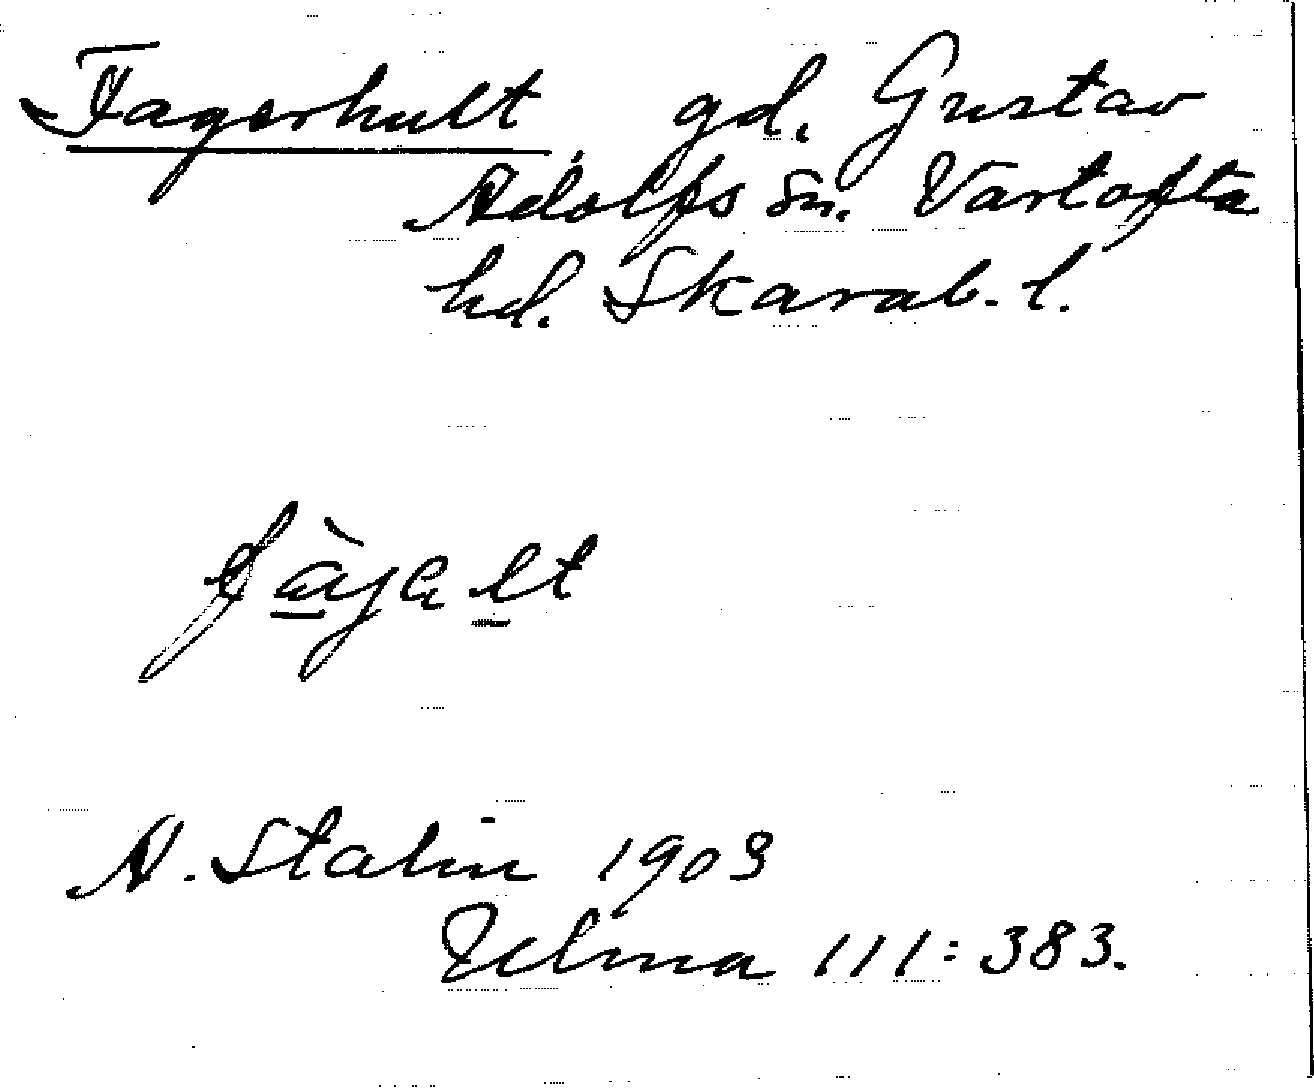 Fagerhult, gd. Gustav
Adolfs sn. Vartofta
hd. Skarab. l.
fàgɐlt
A. Stalin 1903
Ulma 111:383.